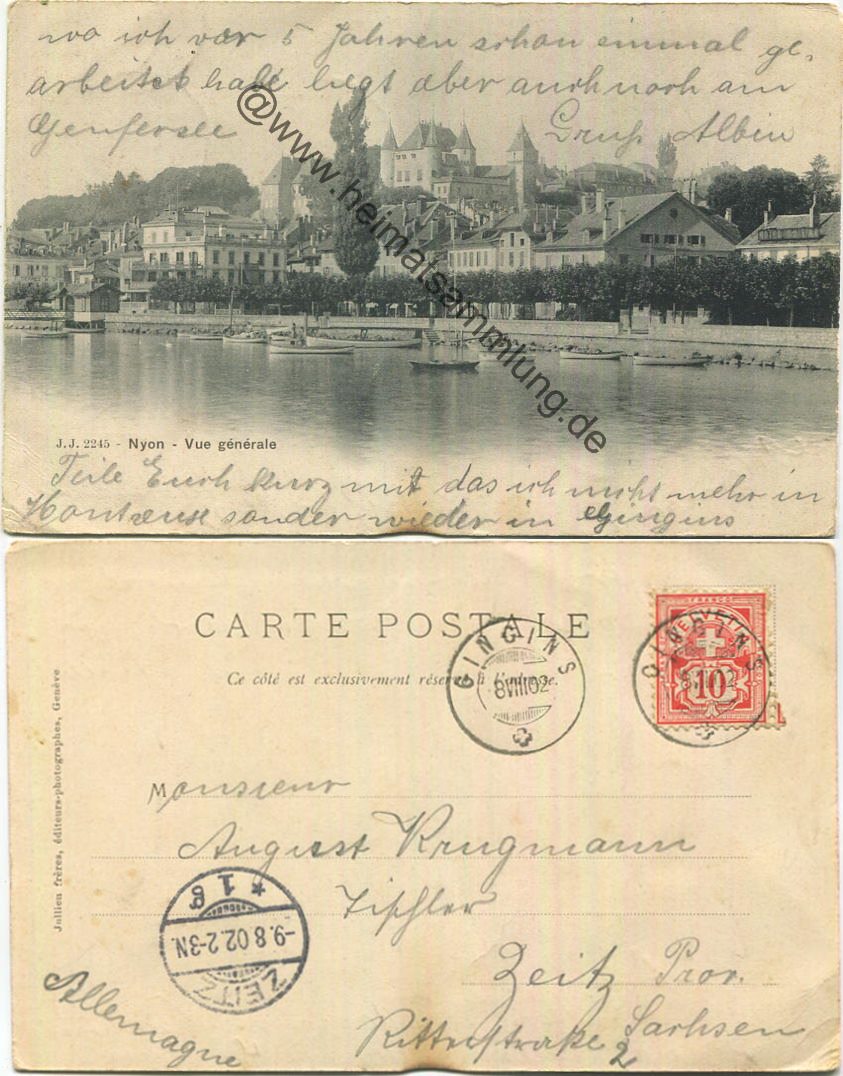 wo ich vor 5 Jahren schon einmal ge-
arbeitet habe liegt aber auch noch am
Genfersee Gruß Albin
@www.heimatsammlung.de
J.J. 2245 - Nyon - Vue générale
Teile Euch kurz mit das ich nicht mehr in
sonder wieder in Gingins
CARTE POSTALE
Ce côté est exclusivement réservé à l'adresse.
GINGINS
8VIII02
FRANCO
HELVETIA
10
GINGINS
8VIII02
Jullien frères, éditeurs-photographes, Genève
Monsieur
August Krugmann
Tischler
Zeitz Prov.
Sachsen
Ritterstraße 2
Allemagne
ZEITZ
-9.8.02.2-3N.
* 1 g